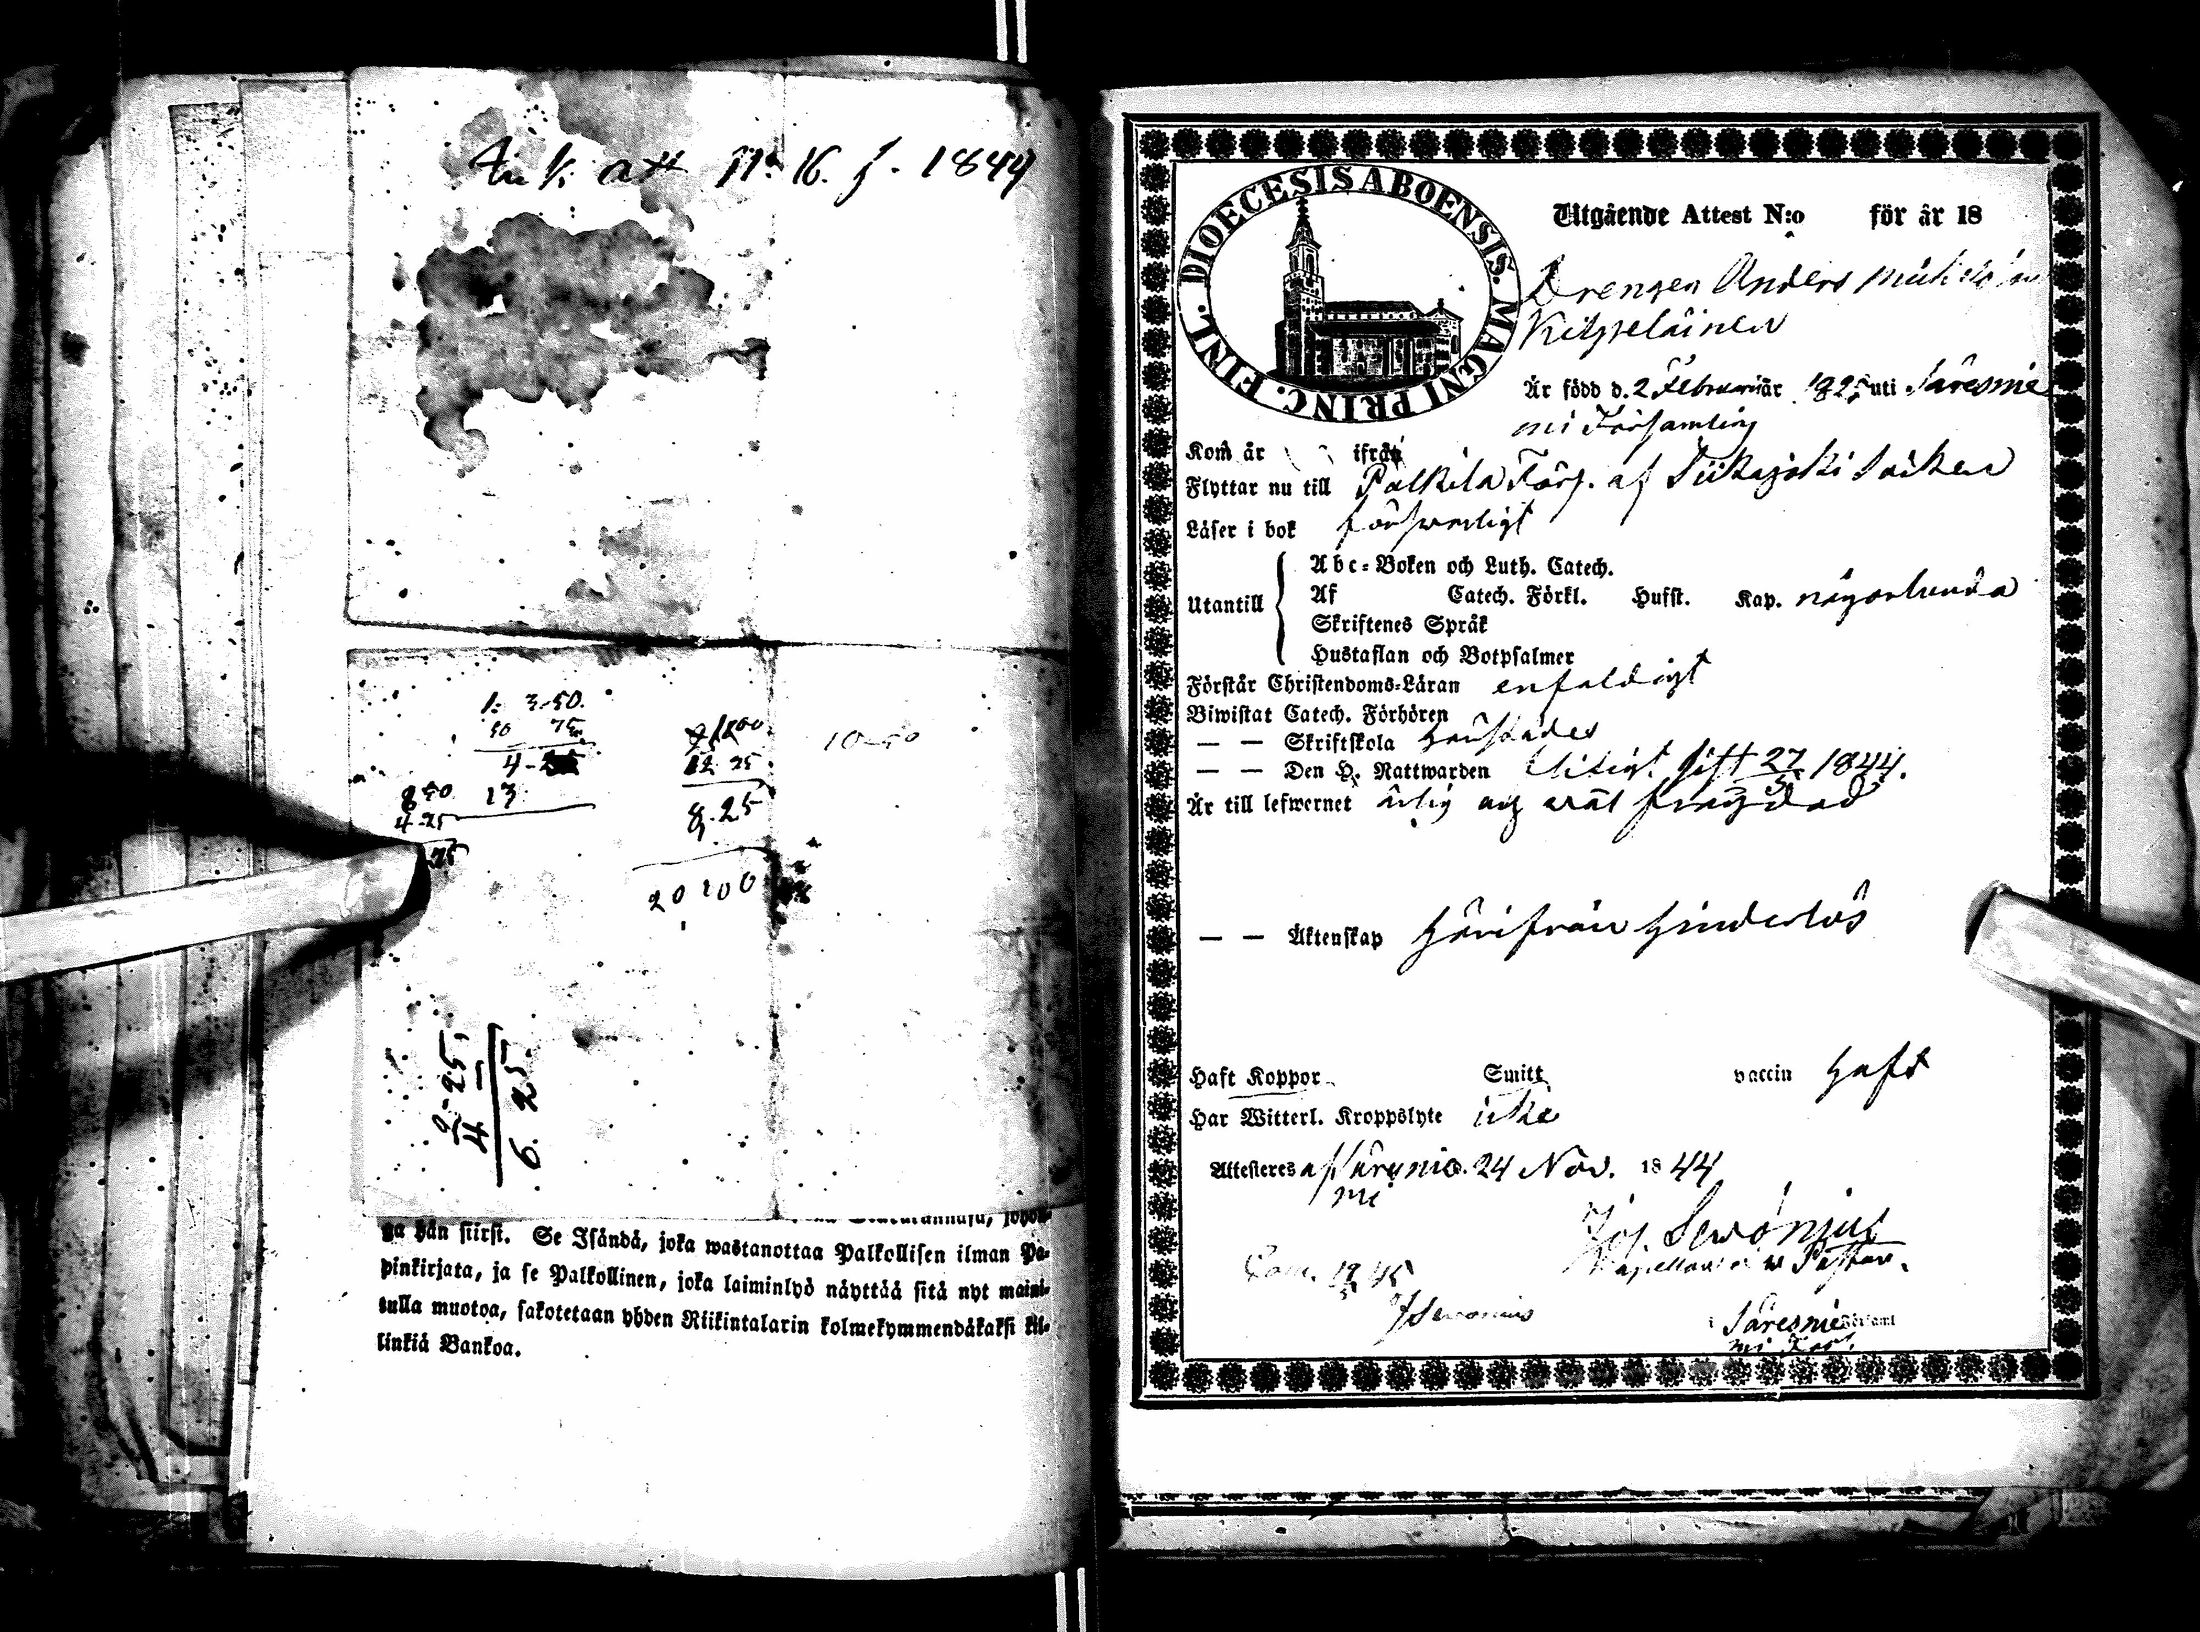 Ank. att No 16. f. 1844
1. 3-50.
50 75
4-
8 50 13
4-25
75
12 25
8.25
20 100
10-50
2-25,
4
6. 25
ga hän siirsi. Se Isändä, joka wastanottaa Palkollisen ilman Pa-
pinkirjata, ja se Palkollinen, joka laiminlyö näyttää sitä nyt maini-
tulla muotoa, sakotetaan yhden Riikintalarin kolmekymmendäkaksi kil-
linkiä Bankoa.
DIOECESIS ABOENSIS. MAGNI PRINC. FINL.
Utgående Attest N:o för år 18
Drengen Anders
Kitzeläinen
Är född d. 2 Februarii år 1825 uti Säresnie
mi Församling
Kom år ifrån
Flyttar nu till Pulkila Förs. af Siikajoki Socken
Läser i bok försvarligt
Utantill
Abc-Boken och Luth. Catech.
Af Catech. Förkl. Husst. Kap. någorlunda
Skriftenes Språk
Hustaflan och Botpsalmer
Förstår Christendoms-Läran enfaldigt
Biwistat Catech. Förhören
— — Skriftskola härstädes
— — Den H. Nattwarden flitigt sist 27/5 1844.
Är till lefwernet ärlig och väl frägdad
— — Äktenskap härifrån hinderlös
Haft Koppor Smitt vaccin haft
Har Witterl. Kroppslyte icke
Attesteras af Säresnie 24 Nov. 1844
mi
Jos. Sewonius
Kapellan i w Pastor.
Com. 19/5 45
JSewonius
i Säresnie Församl
mi Kap.